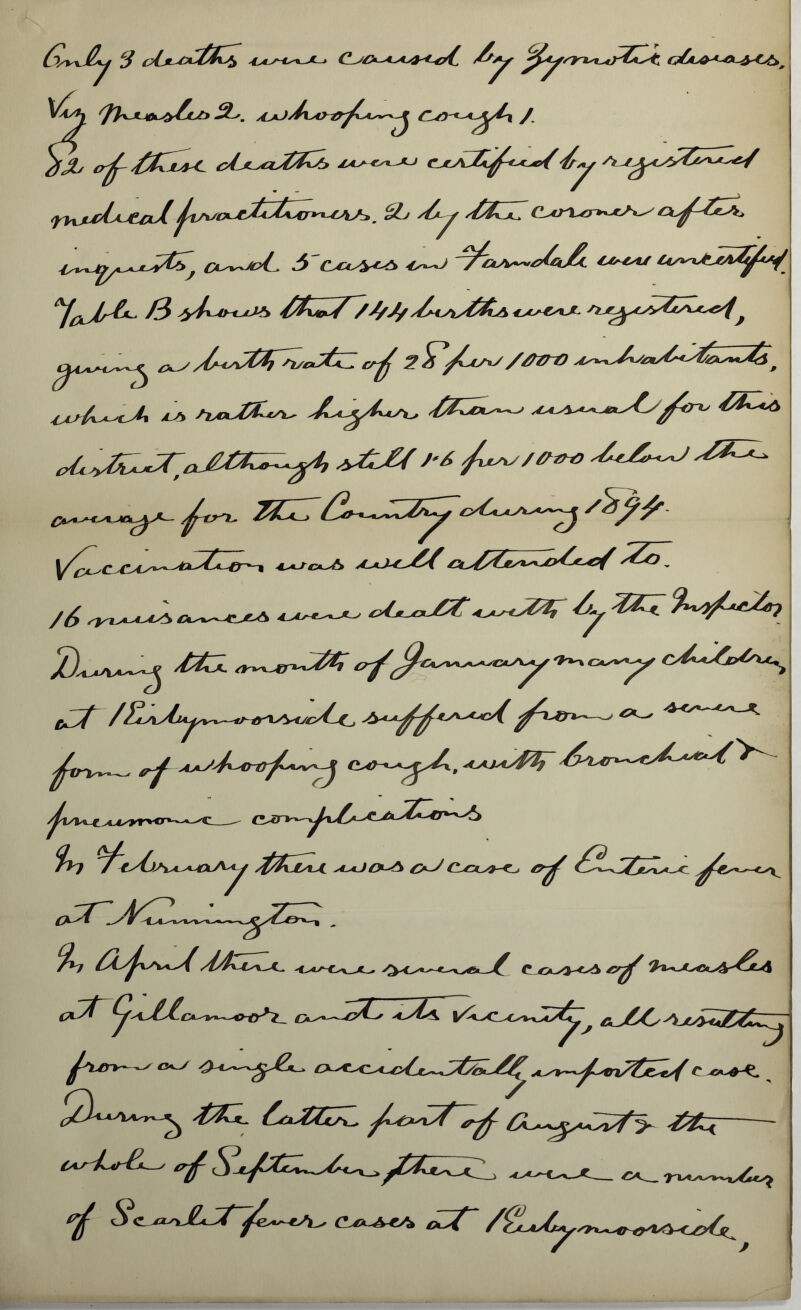 Only 3 deaths were caused by Zymotic diseases.
Viz Measles 2. whooping cough 1.
82 of these deaths were certified by registered
medical practitioners. 2 by the coroner after
inquests, and 5 cases in Farndale were uncertified.
Table B shows that 144 births were registered,
giving a birth rate of 28 per 1000 inhabitants,
which is rather higher than usual for this
district, although still 1.6 per 1000 below the
average for the Country during 1894.
Vaccination was well attended to.
16 nuisances were dealt with by the Inspector
During the month of January many children,
at Kirbymoorside suffered from a severe
form of whooping cough, with bronchial &
pneumonic complications
In February there was a case of Enteric fever
at Nunnington.
In April there were several cases of measles
at Gillamoor and its vicinity, all resulting
from a single accidentally imported case.
During the latter part of August & the
whole of September there were a number
of Scarlet fever cases at Kirbymoorside,